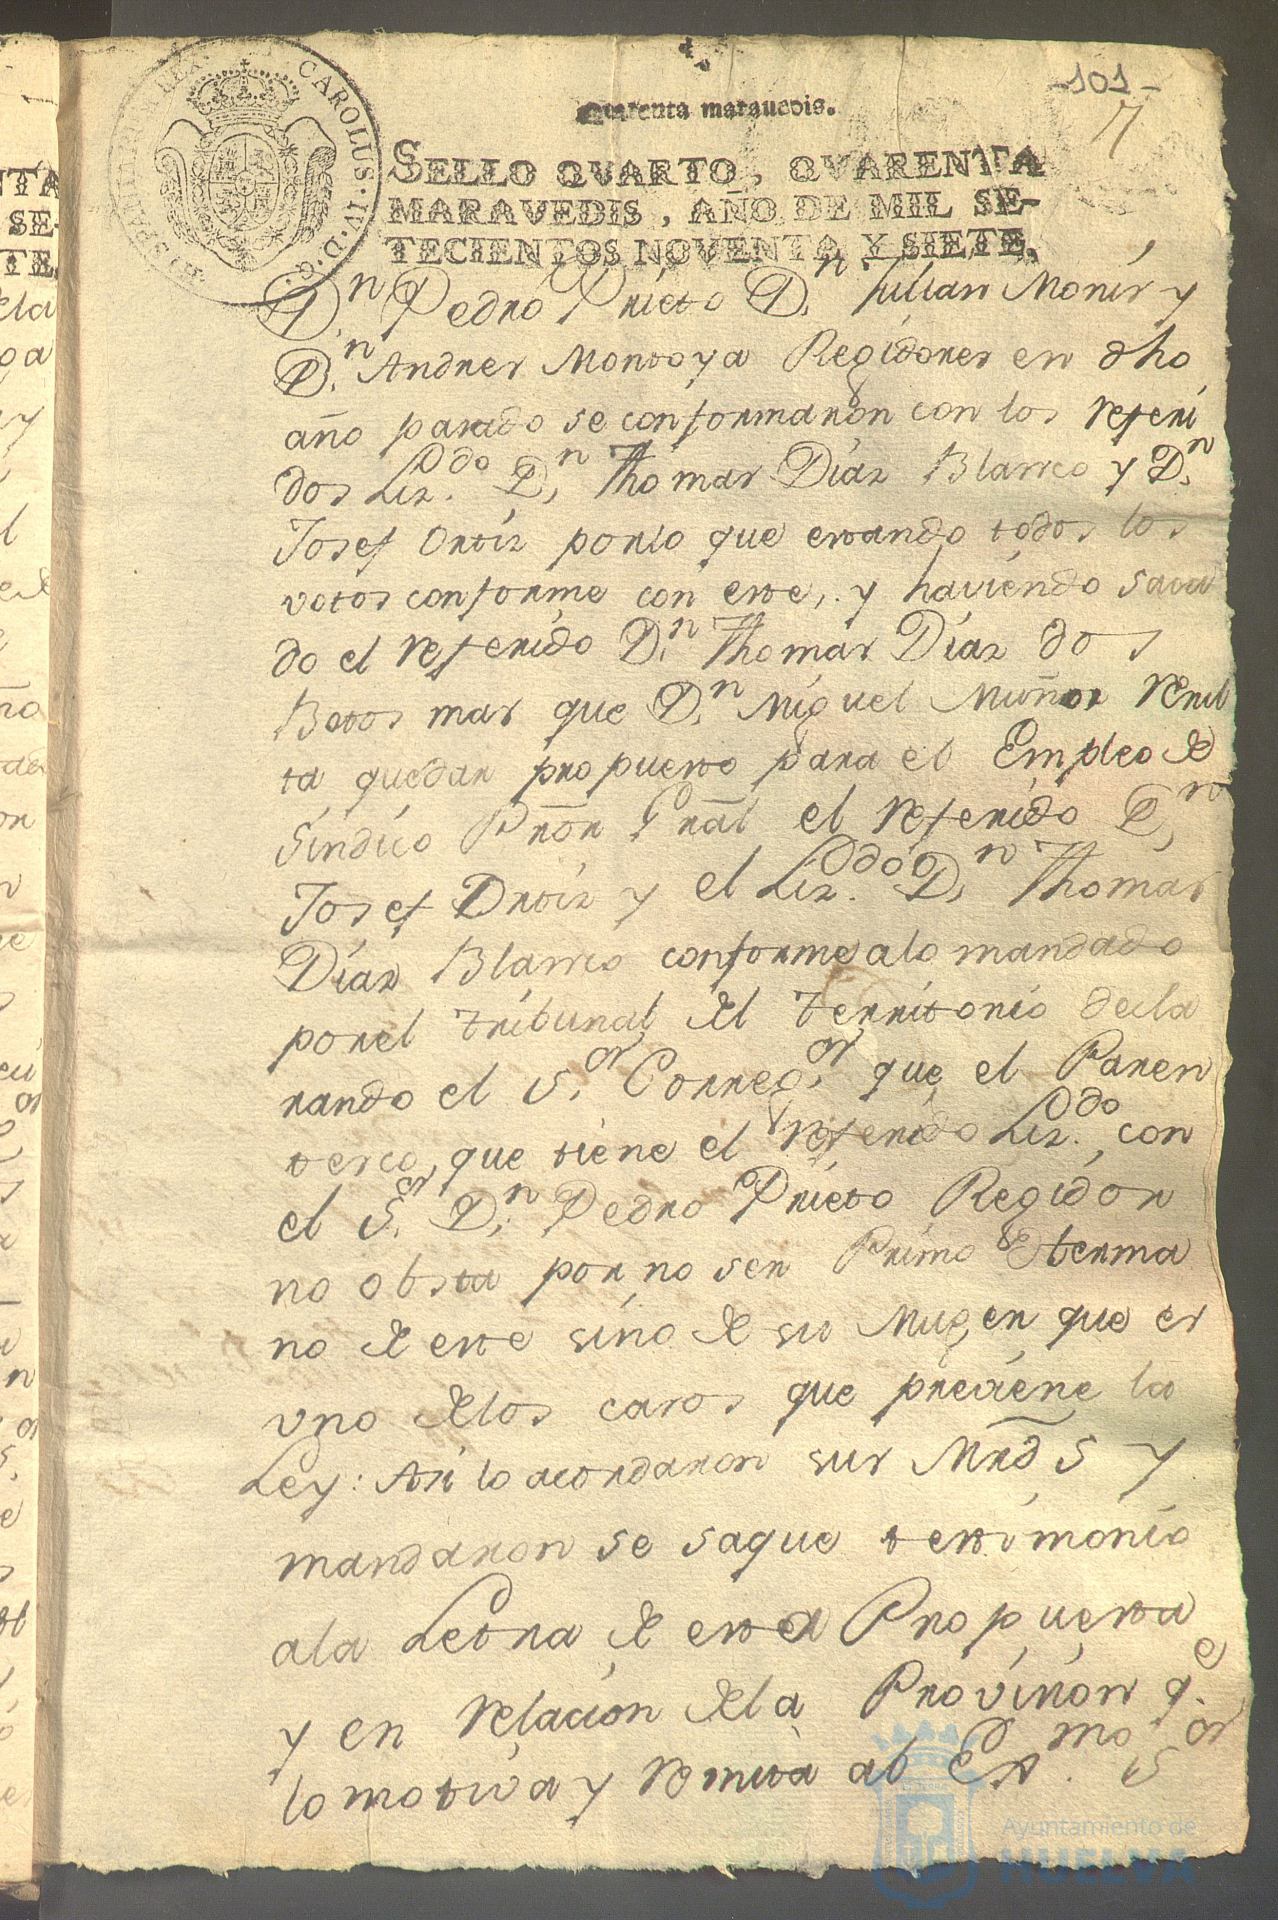 -101-
7
Quarenta marauedis.
HISPANIARUM REX. CAROLUS. IV. D. G.
SELLO QVARTO, QVARENTA
MARAVEDIS, AÑO DE MIL SE-
TECIENTOS NOVENTA Y SIETE.
D.n Pedro Prieto D.n Julian Monis y
D.n Andres Montoya Regidores en dho
año pasado se conformaron con los referi
dos Liz.do D.n Thomas Diaz Blanco y D.n
Josef Ortiz porlo que estando todos los
votos conforme con este, y haviendo saca
do el referido D.n Thomas Diaz dos
Botos mas que D.n Miguel Muñoz resul
ta quedar propuesto para el Empleo de
Sindico Prõr Grãl el referido D.n
Josef Ortiz y el Liz.do D.n Thomas
Diaz Blanco conforme alo mandado
porel tribunal del territorio decla
rando el S.or Correg.or que el Paren
tesco, que tiene el referido Liz.do con
el S.or D.n Pedro Prieto Regidor
no obsta por no ser Primo Herma
no de este sino de su Muger que es
vno delos casos que previene la
Ley: Asi lo acordaron sus Mrds y
mandaron se saque testimonio
ala Letra de esta Propuesta
y en relacion dela Provision q.e
lo motiva y remita al Ex.mo S.or
Ayuntamiento de
HUELVA